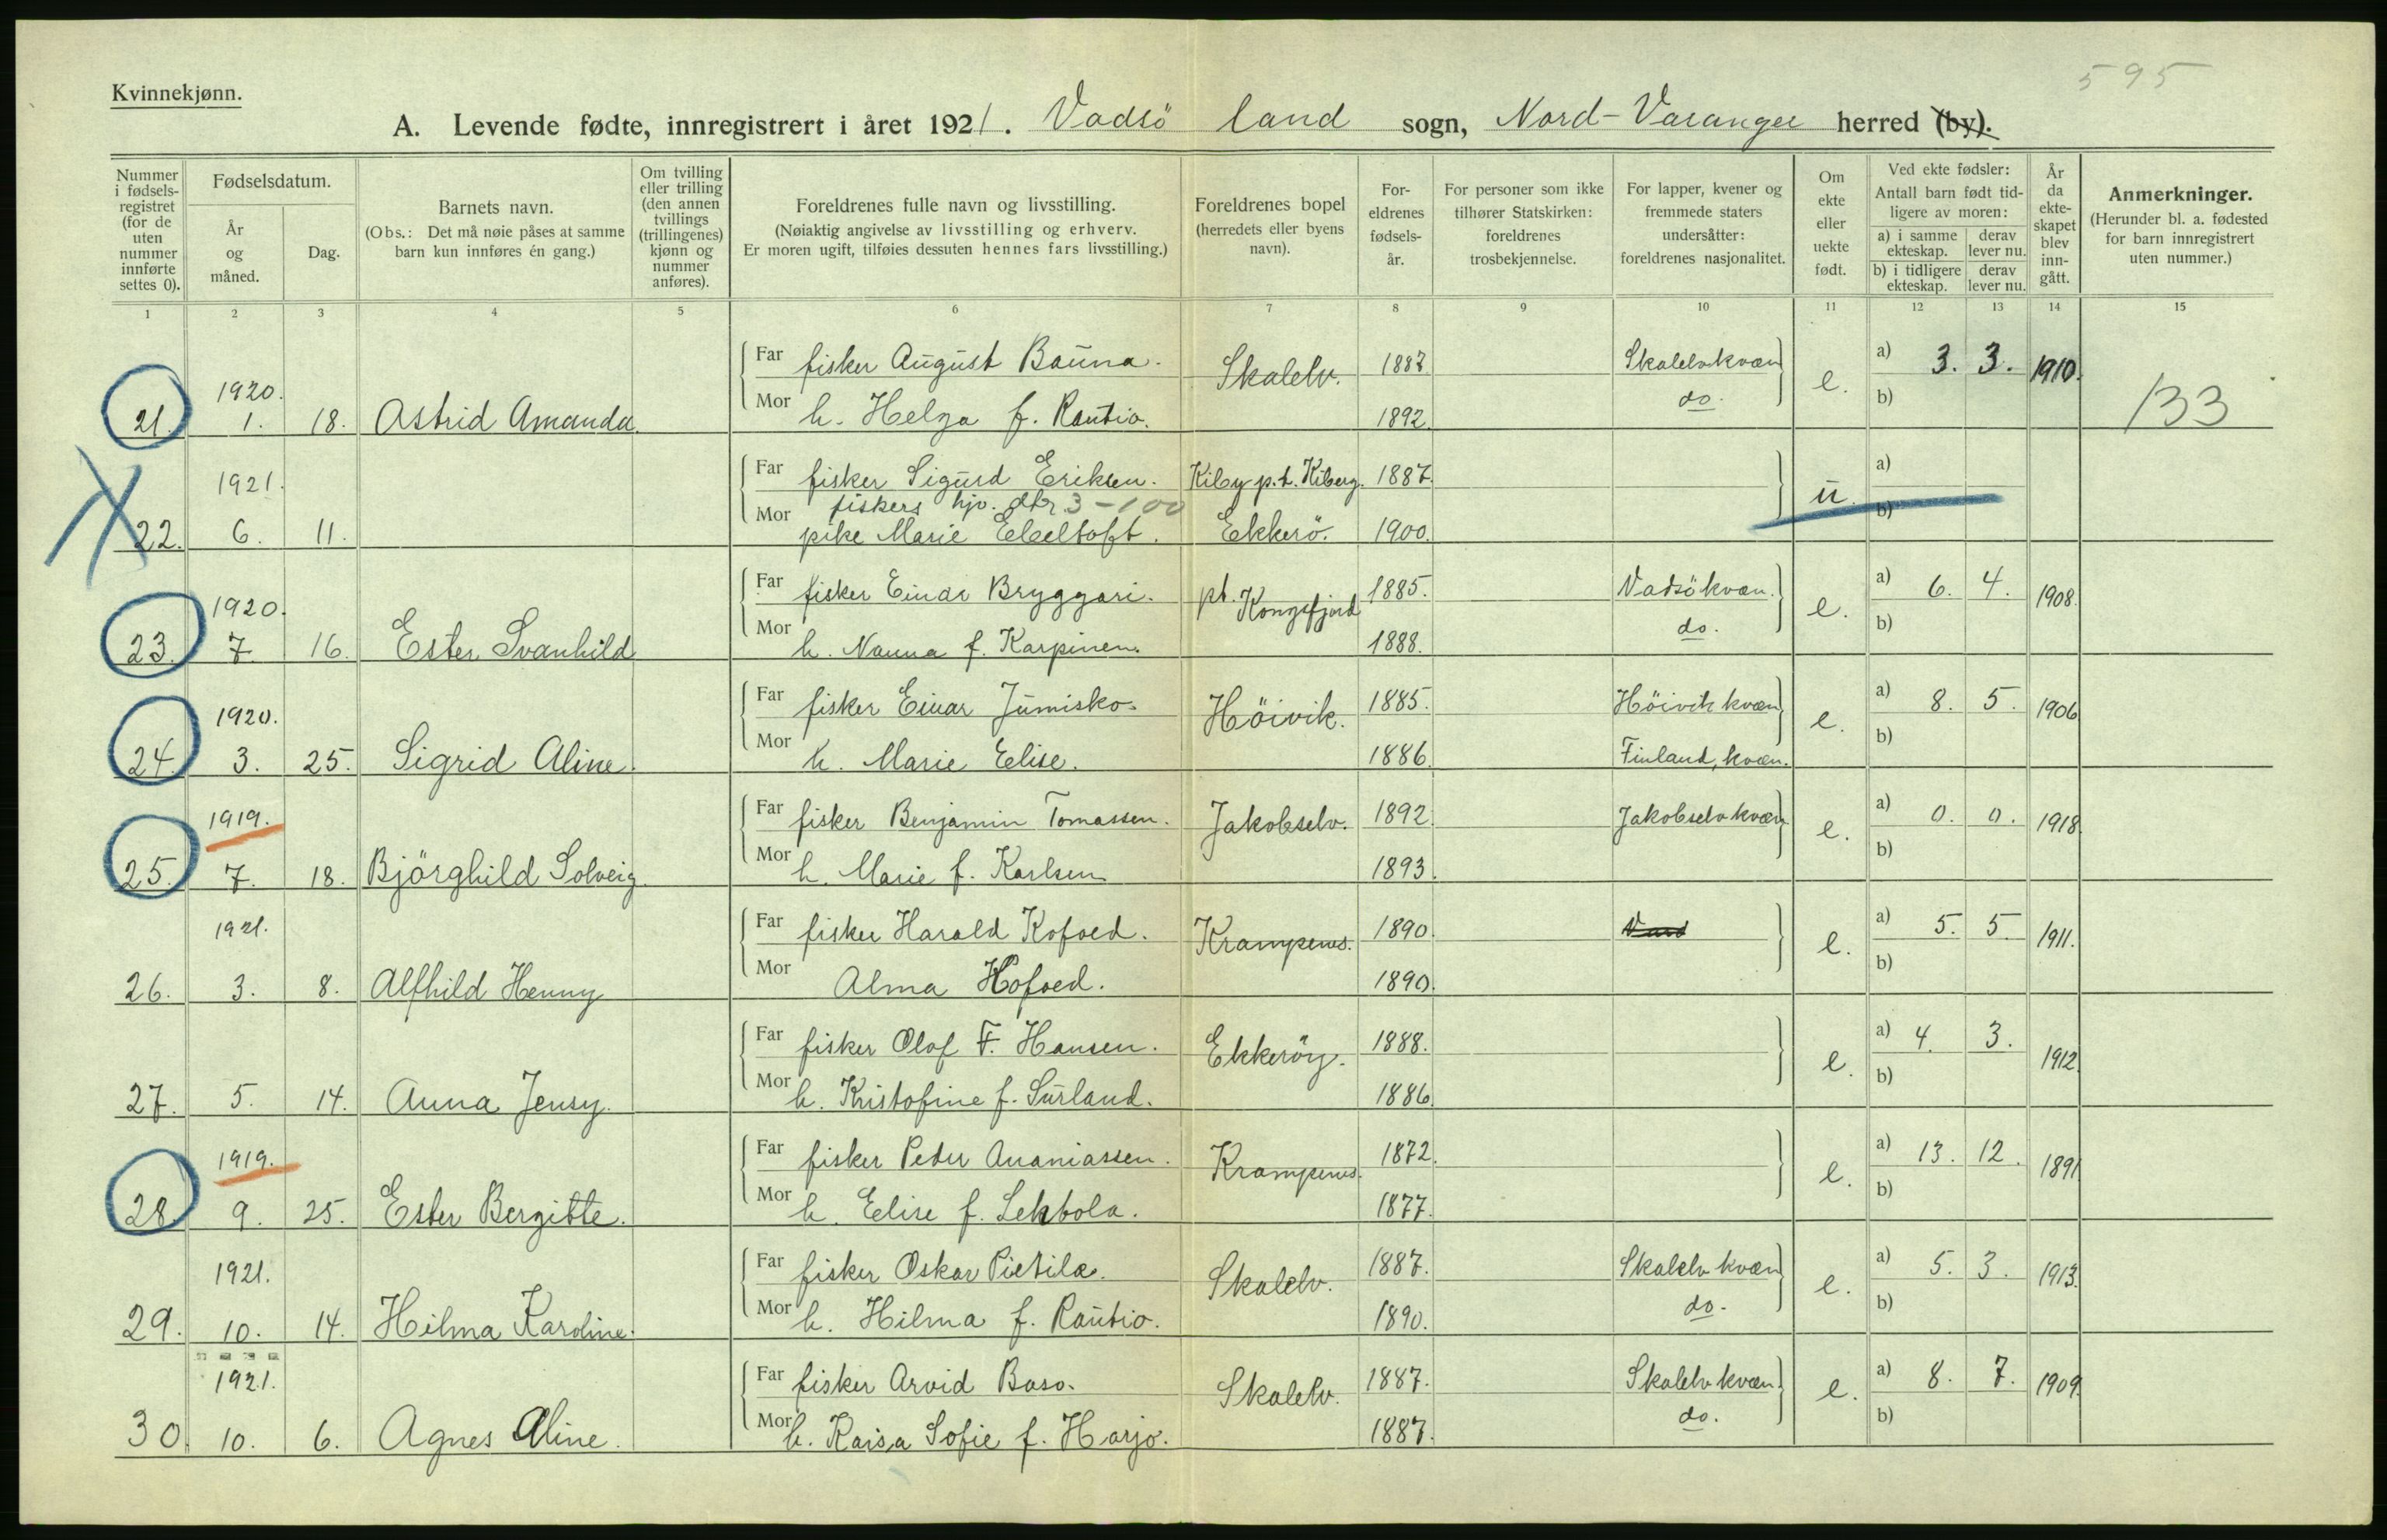 595
Kvinnekjønn.
A. Levende fødte, innregistrert i året 1921. Vadsö land sogn, Nord-Varanger herred (by).
Nummer i fødsels-registret (for de uten nummer innførte settes 0).
Fødselsdatum.
År og måned.
Dag.
Barnets navn.
(Obs.: Det må nøie påses at samme barn kun innføres én gang.)
Om tvilling eller trilling (den annen tvillings (trillingenes) kjønn og nummer anføres).
Foreldrenes fulle navn og livsstilling.
(Nøiaktig angivelse av livsstilling og erhverv.
Er moren ugift, tilføies dessuten hennes fars livsstilling.)
Foreldrenes bopel (herredets eller byens navn).
For-eldrenes fødsels-år.
For personer som ikke tilhører Statskirken: foreldrenes trosbekjennelse.
For lapper, kvener og fremmede staters undersåtter: foreldrenes nasjonalitet.
Om ekte eller uekte født.
Ved ekte fødsler:
Antall barn født tid-ligere av moren:
a) i samme ekteskap. derav lever nu.
b) i tidligere ekteskap. derav lever nu.
År da ekte-skapet blev inn-gått.
Anmerkninger.
(Herunder bl. a. fødested for barn innregistrert uten nummer.)
1 2 3 4 5 6 7 8 9 10 11 12 13 14 15
1920. Far fisker August Bauna. Skalelv. 1887. Skalelv kvæn e. a) 3. 3. 1910.
21. 1. 18. Astrid Amanda. Mor h. Helga f. Rautio. 1892. do. b) 133
1921. Far fisker Sigurd Eriksen. Kiby p.t. Kiberg. 1887. u. a)
fiskers hjv. dtr. 3-100
22. 6. 11. Mor pike Marie Ebeltoft. Ekkerö. 1900. b)
1920. Far fisker Einar Bryggari. pt. Kongsfjord 1885. Vadsö kvæn. e. a) 6. 4. 1908.
23. 7. 16. Ester Svanhild Mor h. Nanna f. Karpinen. 1888. do. b)
1920. Far fisker Einar Jumisko. Höivik. 1885. Höivik kvæn e. a) 8. 5. 1906
24. 3. 25. Sigrid Aline. Mor h. Marie Eelise. 1886. Finland, kvæn. b)
1919. Far fisker Benjamin Tomassen. Jakobselv. 1892. Jakobselv kvæn e. a) 0. 0. 1918
25. 7. 18. Bjørghild Solveig. Mor h. Marie f. Karlsen 1893. b)
1921. Far fisker Harald Kofoed. Krampenes. 1890. e. a) 5. 5. 1911.
26. 3. 8. Alfhild Henny Mor Alma Kofoed. 1890. b)
Far fisker Olaf F. Hansen. Ekkeröy. 1888. e. a) 4. 3. 1912.
27. 5. 14. Anna Jensy. Mor h. Kristofine f. Surland. 1886. b)
1919. Far fisker Peder Ananiassen. Krampenes. 1872. e. a) 13. 12. 1891
28. 9. 25. Ester Bergitte. Mor h. Eelise f. Lehtola. 1877. b)
1921. Far fisker Oskar Pietilæ. Skalelv. 1887. Skalelv kvæn e. a) 5. 3. 1913.
29. 10. 14. Hilma Karoline. Mor h. Hilma f. Rautio. 1890. do. b)
1921. Far fisker Arvid Baso. Skalelv. 1887. Skalelv kvæn. e. a) 8. 7. 1909.
30. 10. 6. Agnes Aline. Mor h. Kaisa Sofie f. Harjo. 1887. do. b)